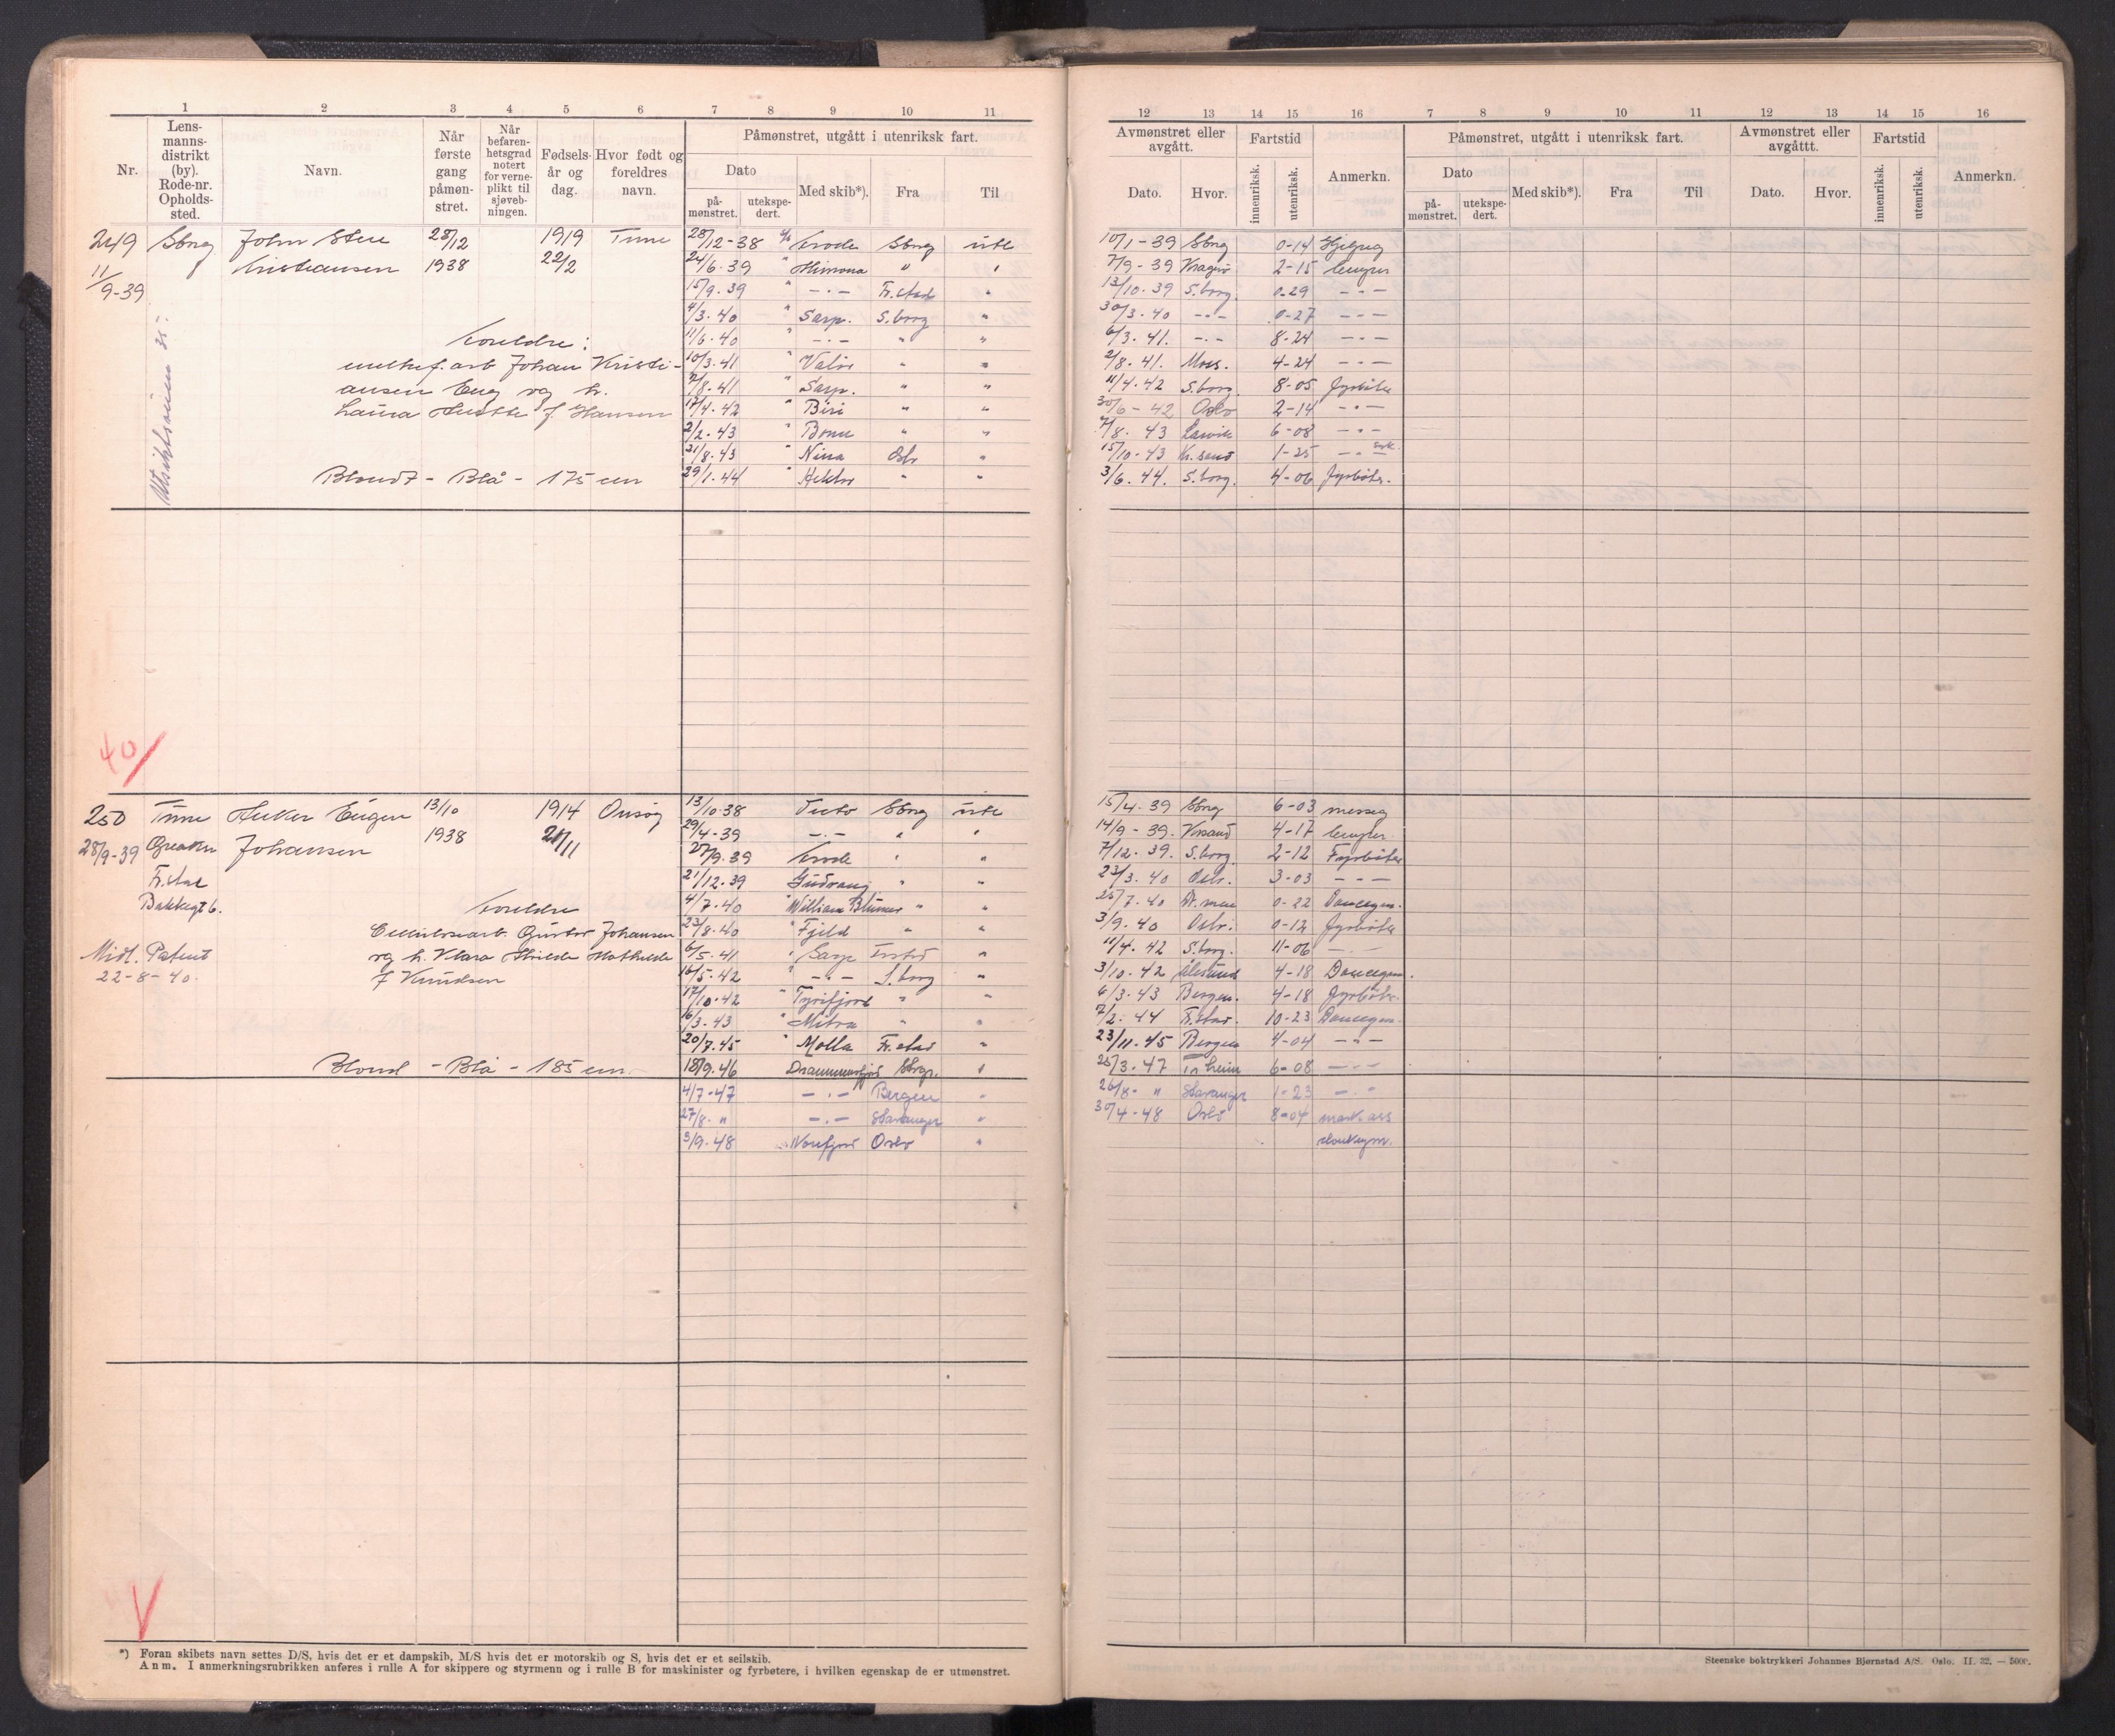 1 2 3 4 5 6 7 8 9 10 11
Nr.
Lens-
manns-
distrikt
(by).
Rode-nr.
Opholds-
sted.
Navn.
Når
første
gang
påmøn-
stret.
Når
befaren-
hetsgrad
notert
for verne-
plikt til
sjøveb-
ningen.
Fødsels-
år og
dag.
Hvor født og
foreldres
navn.
Påmønstret, utgått i utenriksk fart.
Dato
på-
mønstret.
utekspe-
dert.
Med skib*).
Fra
Til
249 Sbrg John Sten 28/12 1919 Tune 28/12-38 Sbrg ute
11/9-39 Kristiansen 1938 22/2 24/6.39 " Mimona " "
15/9.39 " -.- Fr.stad "
4/3.40 " Sarp. S.borg "
11/6.40 " -.- " "
10/3.41 " Valør " "
2/8.41 " Sarp. " "
17/4.42 " Biri " "
2/2.43 " " "
21/8.43 " Nina Oslo "
29/1.44 " Hektor " "
Foreldre:
Johan Kristi-
ansen Eng og h.
Laura f. Hansen
Blondt - Blå - 175 cm
40/
250 Tune Eugen 13/10 1914 Onsøy 13/10.38 Sbrg ute
28/9-39 Greaker Johansen 1938 21/11 29/4-39 -.- " "
Fr.stad
Bakkegt 6.
27/9.39 " "
21/12.39 Gudvang " "
4/7.40 " William Blumer " "
23/8.40 " Fjeld " "
6/5.41 " Sarp Frstad "
16/5.42 " -.- S.borg "
17/10.42 " Tyrifjord " "
16/3.43 " Mitra " "
20/7.45 " Molla Fr.stad "
18/9.46 Drammensfjord Sbrg. "
4/7-47 -.- Bergen "
27/8- " -.- Stavanger "
3/9-48 Norefjord Oslo "
Foreldre
Cellulosearb. Gustav Johansen
og h. Klara Mathilde
f Knudsen
Midl. Patent
22-8-40.
Blond - Blå - 185 cm.
*) Foran skibets navn settes D/S, hvis det er et dampskib, M/S hvis det er motorskib og S, hvis det er et seilskib.
Anm. I anmerkningsrubrikken anføres i rulle A for skippere og styrmenn og i rulle B for maskinister og fyrbøtere, i hvilken egenskap de er utmønstret.
12 13 14 15 16 7 8 9 10 11 12 13 14 15 16
Avmønstret eller
avgått.
Dato.
Hvor.
Fartstid
innenriksk.
utenriksk.
Anmerkn.
Påmønstret, utgått i utenriksk fart.
Dato
på-
mønstret.
utekspe-
dert.
Med skib*).
Fra
Til
Avmønstret eller
avgåttt.
Dato.
Hvor.
Fartstid
innenriksk.
utenriksk.
Anmerkn.
10/1-39 Sbrg 0-14
7/9-39 Kragerø 2-15 lemper
13/10.39 S.borg. 0.29 -"-
30/3.40 -"- 0-27 -"-
6/3.41. -"- 8-24 -"-
2/8.41. Moss. 4-24 -"-
11/4.42 S.borg. 8-05 fyrbøter
30/6-42 Oslo 2-14 -"-
7/8.43 Larvik 6-08 -"-
15/10.43 Kr.sand 1-25 -"-
3/6.44. S.borg. 4-06 fyrbøter.
15/4.39 Sbrg 6-03 messeg
14/9-39. Krsand 4-17 lemper
7/12.39. S.borg. 2-12 Fyrbøter
23/3.40 Oslo. 3-03 -"-
25/7.40 0-22 Donkeym.
3/9.40 Oslo. 0-12 fyrbøter
11/4.42 S.borg. 11-06 -"-
3/10.42 Ålesund 4-18 Donkeym.
6/3.43 Bergen. 4-18 fyrbøter.
7/2.44 Fr.stad. 10-23 Donkeym.
23/11.45 Bergen 4-04 -"-
25/3.47 Tr.heim 6-08 -"-
26/8- " Stavanger 1-23 -"-
30/4-48 Oslo 8-04 mask ass
donkeym.
Steenske boktrykkeri Johannes Bjørnstad A/S. Oslo. II. 32. — 5000.